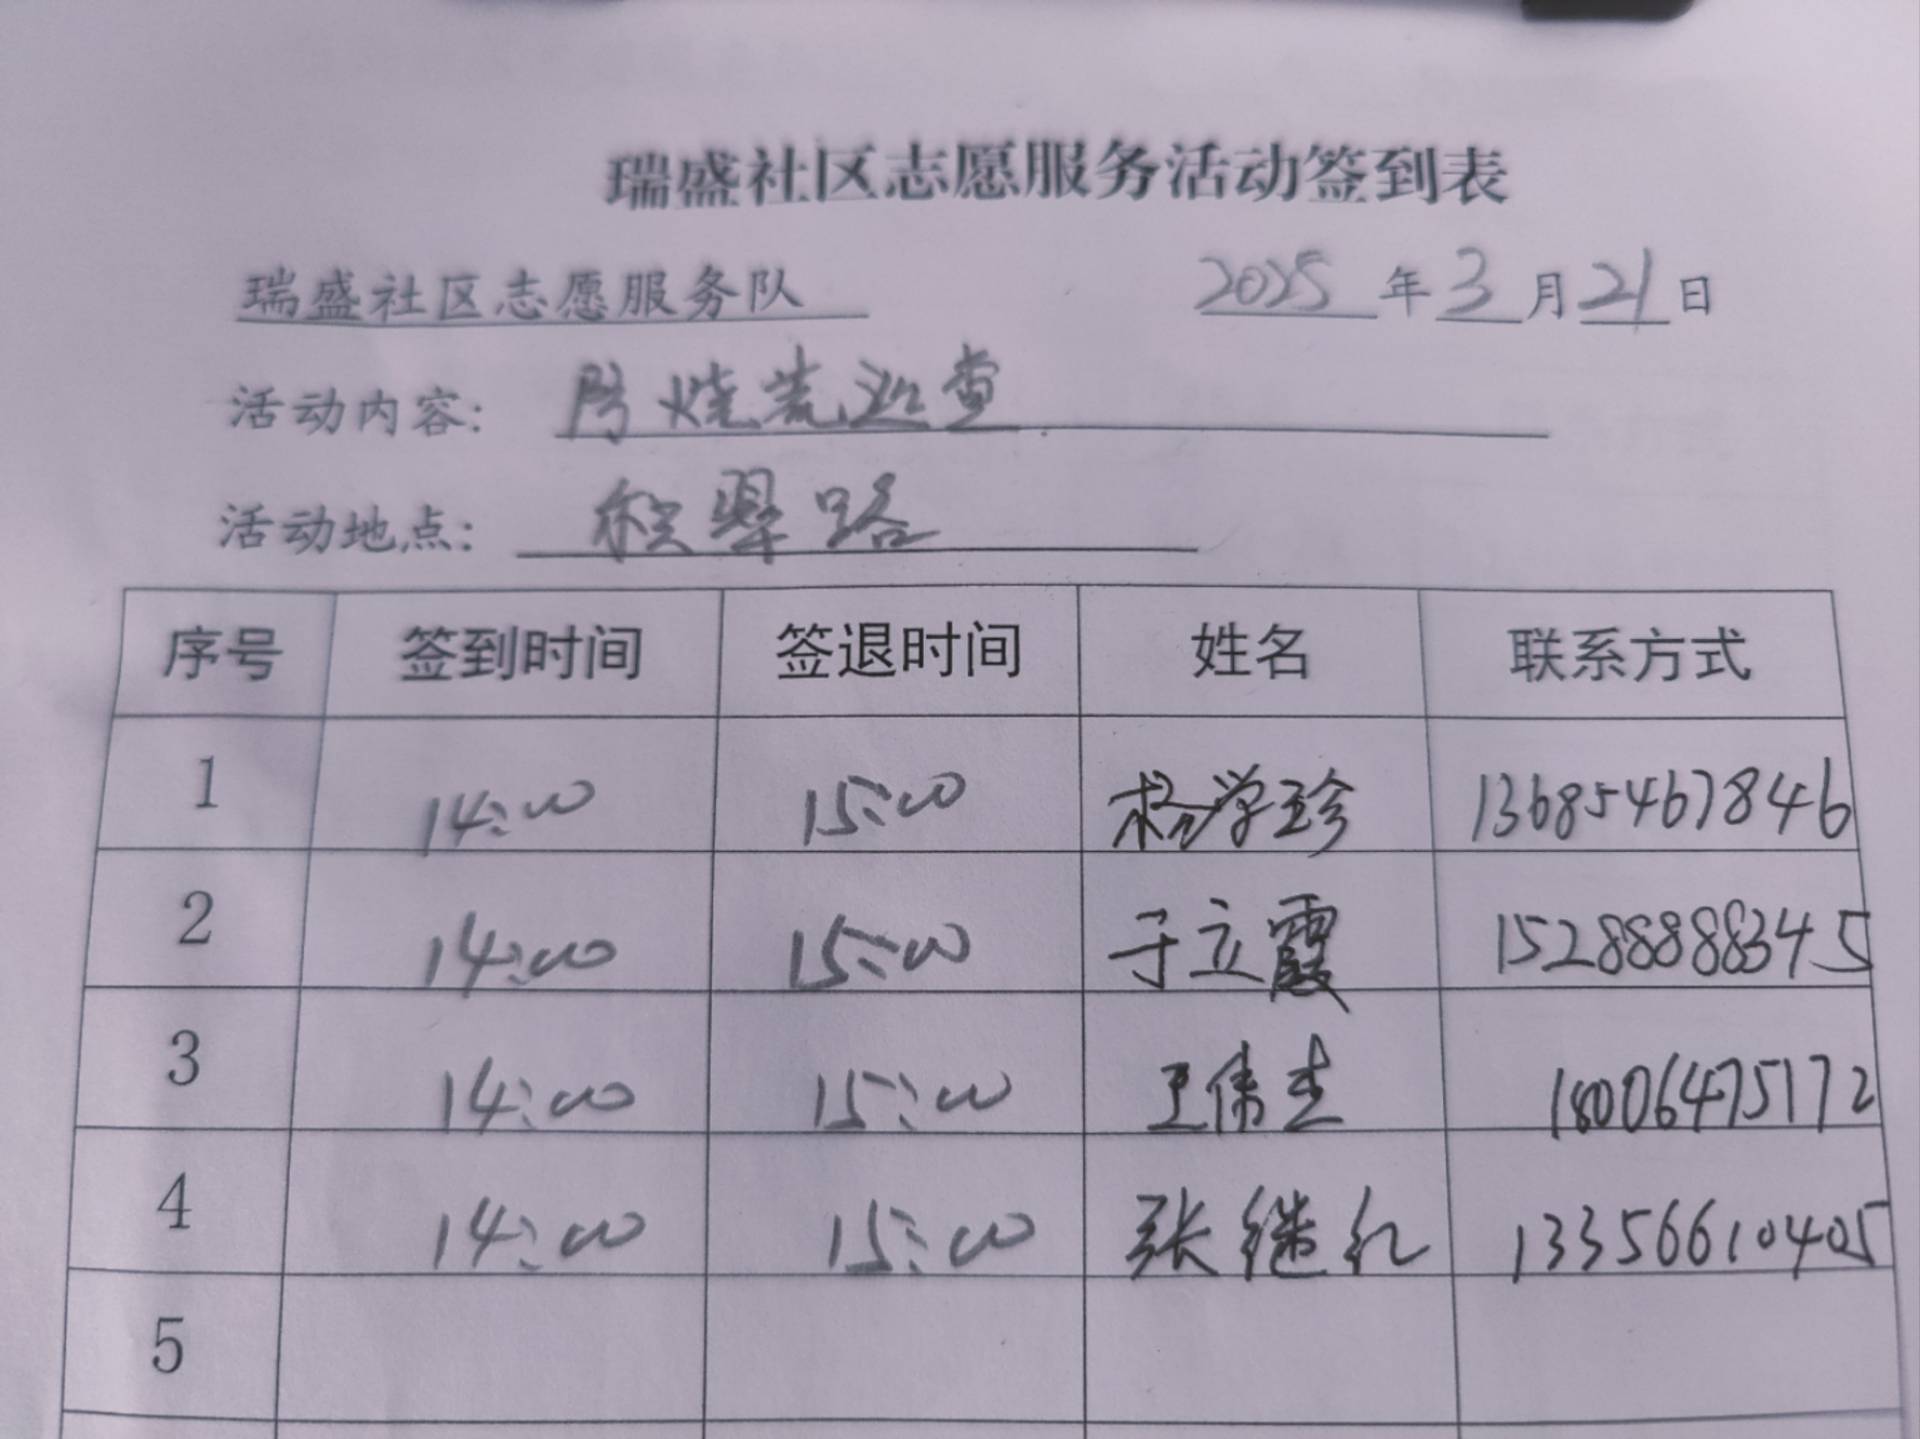 瑞盛社区志愿服务活动签到表
瑞盛社区志愿服务队 2025年3月21日
活动内容: 防烧荒巡查
活动地点: 积翠路
序号 签到时间 签退时间 姓名 联系方式
1 14:00 15:00 杨学珍 13685467846
2 14:00 15:00 于立霞 15288888345
3 14:00 15:00 王伟杰 18006475172
4 14:00 15:00 张继红 13356610405
5